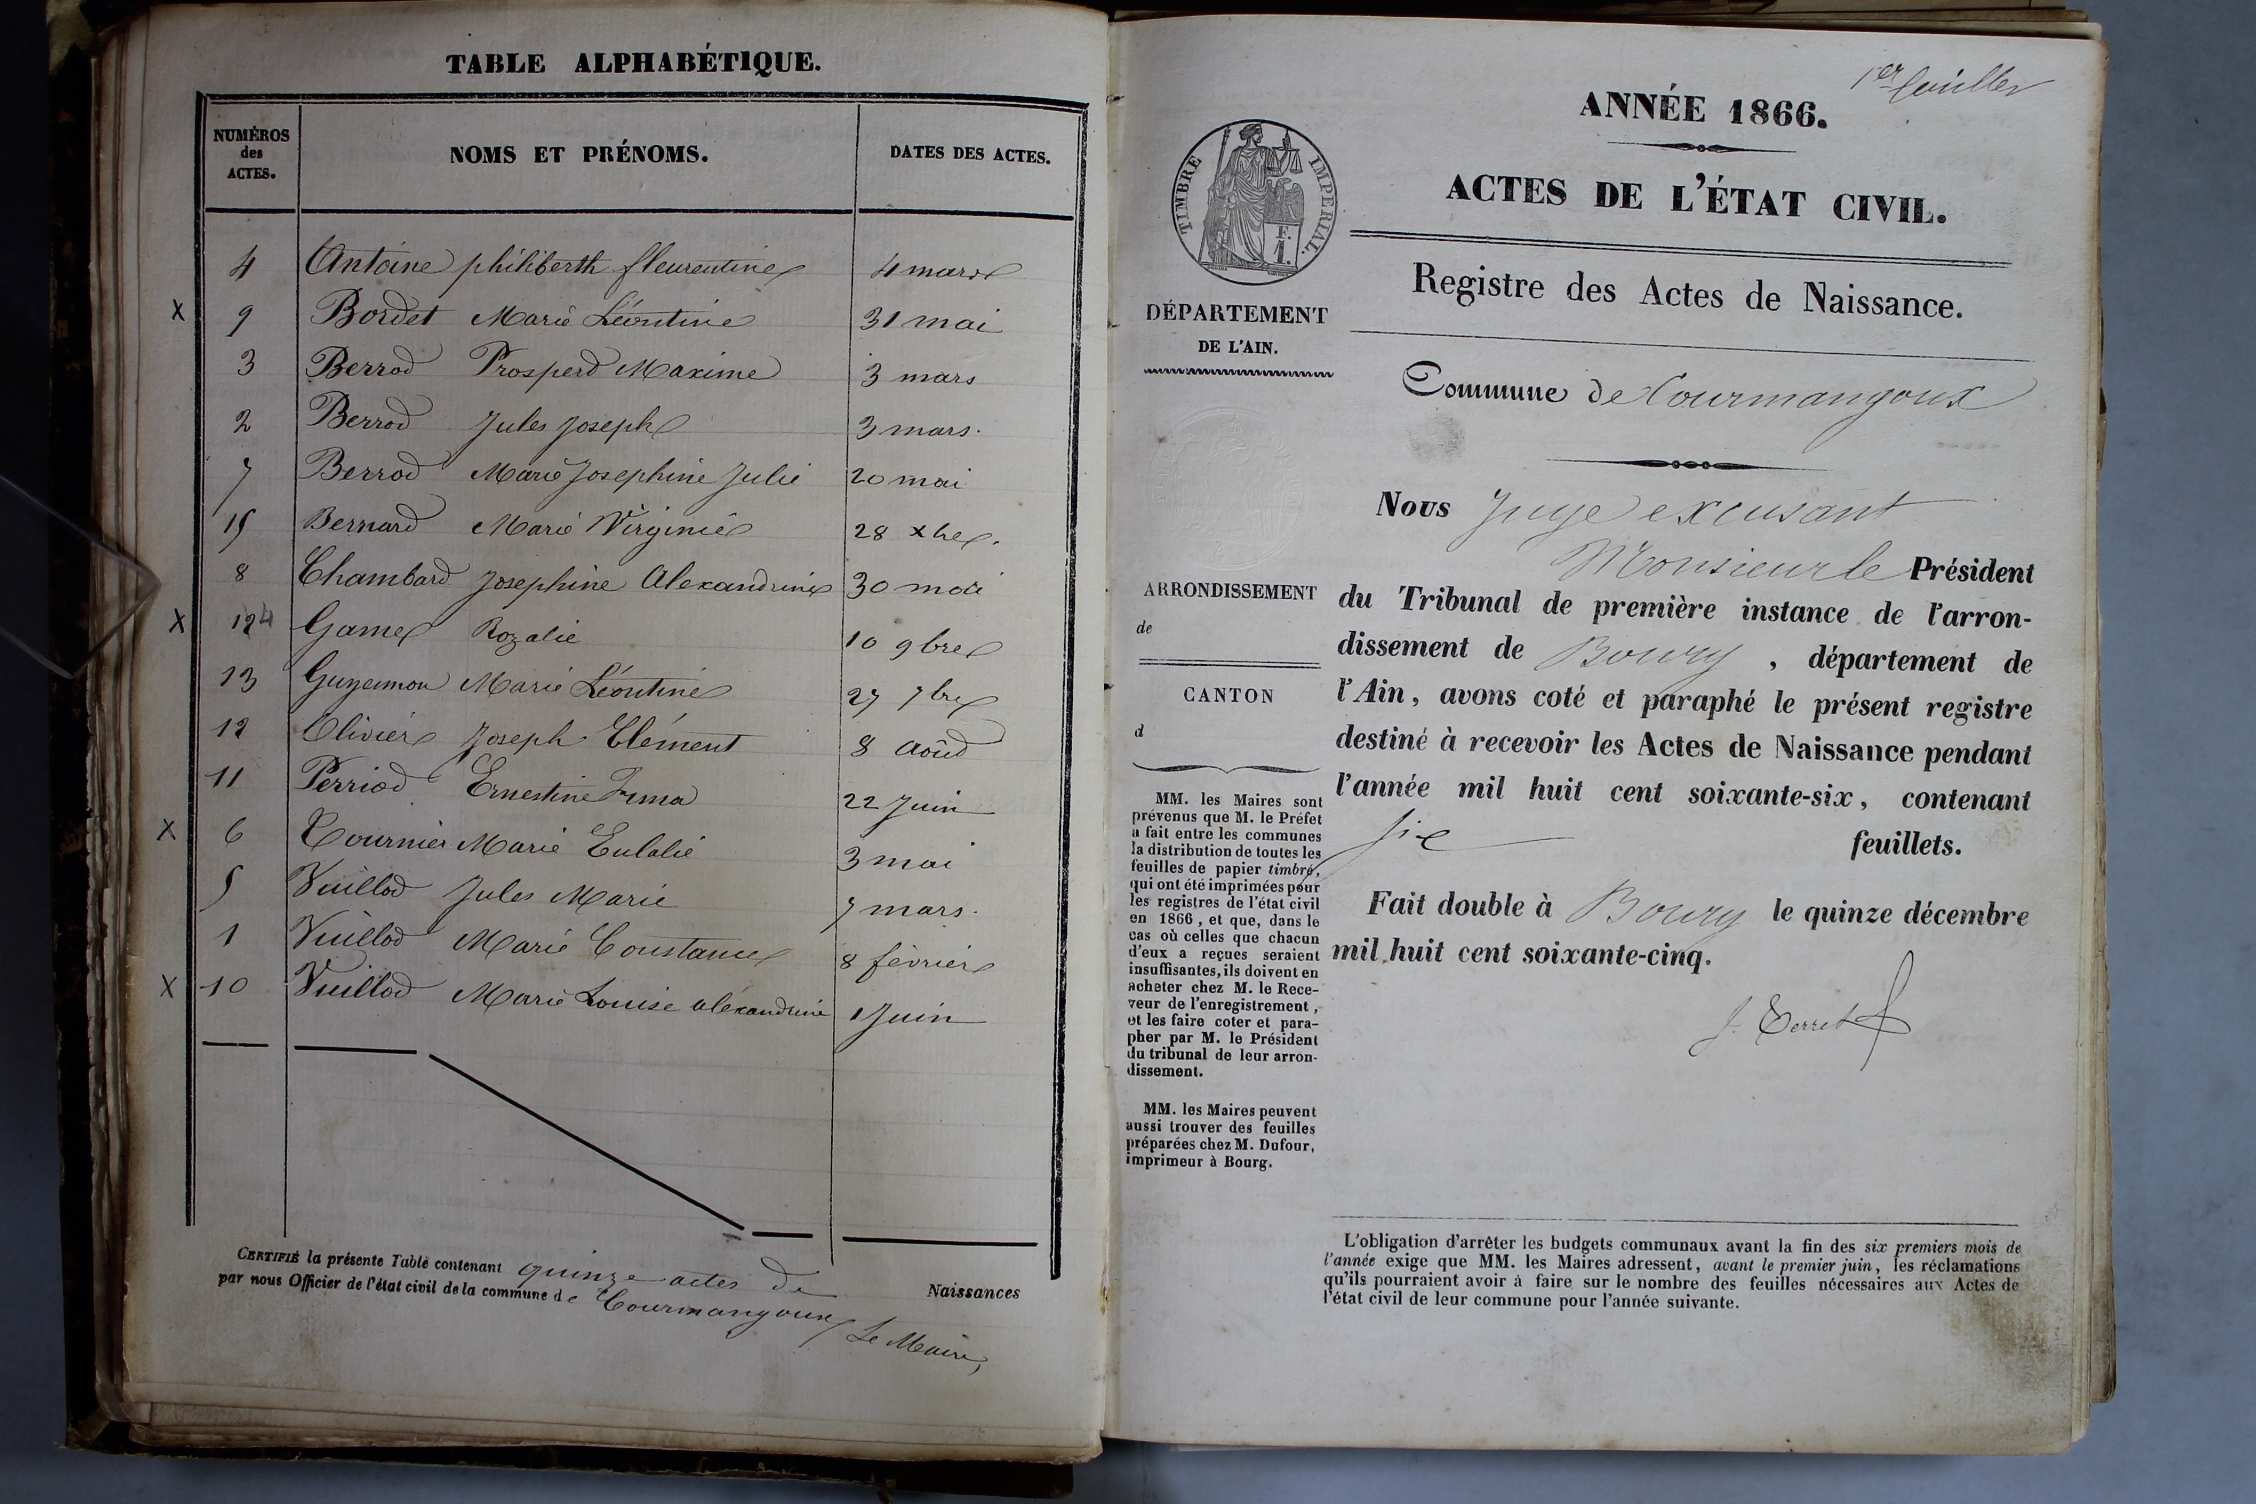 TABLE ALPHABÉTIQUE.
NUMÉROS des ACTES. NOMS ET PRÉNOMS. DATES DES ACTES.
4 Antoine philiberth fleurentine 4 mars
X 9 Bordet Marie Léontine 31 mai
3 Berrod Prosperd Maxime 3 mars
2 Berrod Jules Joseph 3 mars.
7 Berrod Marie Josephine Julie 20 mai
15 Bernard Marie Virginie 28 xbre.
8 Chambard Josephine Alexandrine 30 mai
X 14 Game Rozalie 10 9bre
13 Guyennon Marie Léontine 27 7bre
12 Olivier Joseph Clément 8 Aoûd
11 Perriod Ernestine Irma 22 Juin
X 6 Tournier Marie Eulalie 3 mai
5 Vuillod Jules Marie 7 mars.
1 Vuillod Marie Constance 8 février
X 10 Vuillod Marie Louise alexandrine 1 Juin
CERTIFIÉ la présente Table contenant quinze actes de Naissances
par nous Officier de l'état civil de la commune de Courmangoux
Le Maire,
1er feuillet
ANNÉE 1866.
ACTES DE L'ÉTAT CIVIL.
TIMBRE IMPERIAL.
F.
1.
Registre des Actes de Naissance.
DÉPARTEMENT
DE L'AIN.
Commune de Courmangoux
Nous Juge excusant
Monsieur le Président
du Tribunal de première instance de l'arron-
dissement de Bourg, département de
l'Ain, avons coté et paraphé le présent registre
destiné à recevoir les Actes de Naissance pendant
l'année mil huit cent soixante-six, contenant
six feuillets.
Fait double à Bourg le quinze décembre
mil huit cent soixante-cinq.
ARRONDISSEMENT
de
CANTON
d
MM. les Maires sont
prévenus que M. le Préfet
a fait entre les communes
la distribution de toutes les
feuilles de papier timbré,
qui ont été imprimées pour
les registres de l'état civil
en 1866, et que, dans le
cas où celles que chacun
d'eux a reçues seraient
insuffisantes, ils doivent en
acheter chez M. le Rece-
veur de l'enregistrement,
et les faire coter et para-
pher par M. le Président
du tribunal de leur arron-
dissement.
MM. les Maires peuvent
aussi trouver des feuilles
préparées chez M. Dufour,
imprimeur à Bourg.
L'obligation d'arrêter les budgets communaux avant la fin des six premiers mois de
l'année exige que MM. les Maires adressent, avant le premier juin, les réclamations
qu'ils pourraient avoir à faire sur le nombre des feuilles nécessaires aux Actes de
l'état civil de leur commune pour l'année suivante.